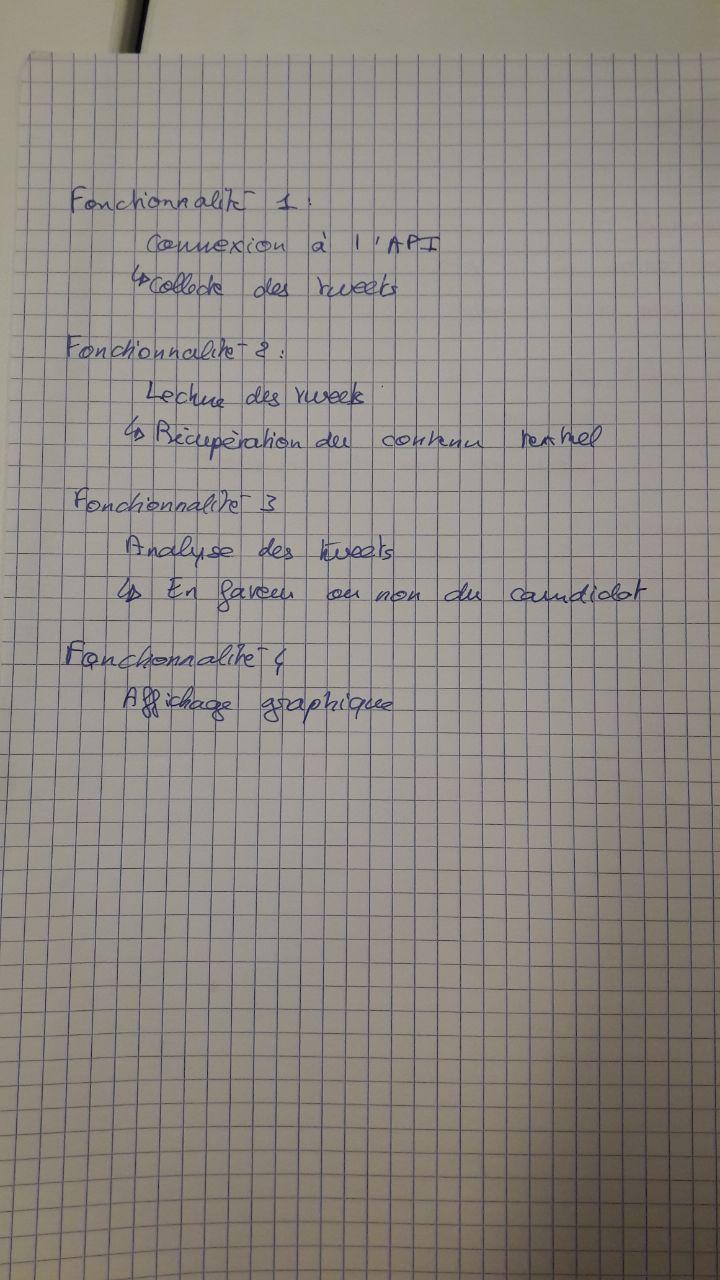 Fonctionnalité 1 :
Connexion à l'API
↳ Collecte des tweets
Fonctionnalité 2 :
Lecture des tweets
↳ Récupération du contenu textuel
Fonctionnalité 3
Analyse des tweets
↳ En faveur ou non du candidat
Fonctionnalité 4
Affichage graphique